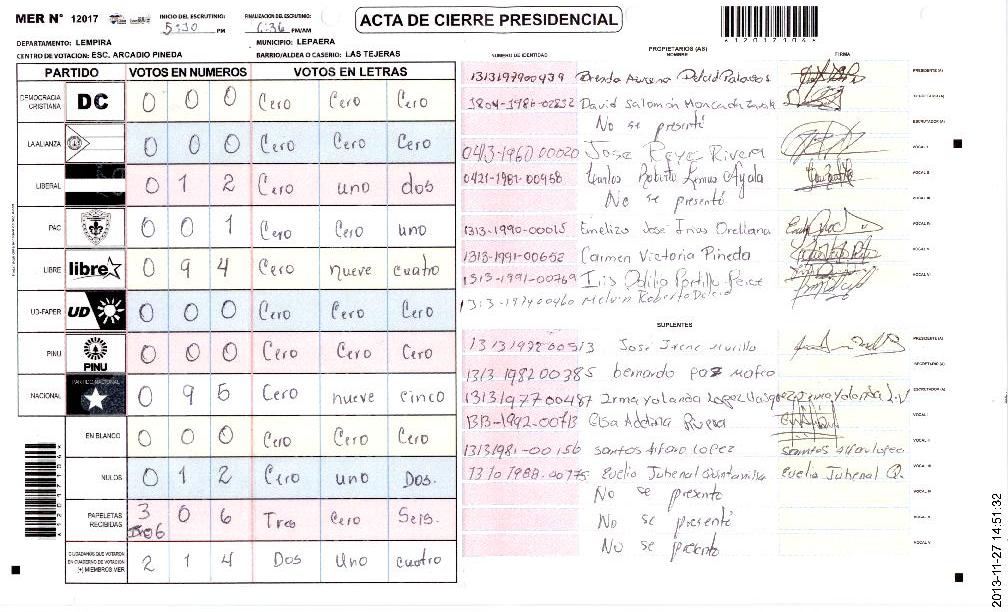 MER N° 12017
INICIO DEL ESCRUTINIO: 5:30 PM
FINALIZACION DEL ESCRUTINIO: 6:36 PM/AM
ACTA DE CIERRE PRESIDENCIAL
DEPARTAMENTO: LEMPIRA
MUNICIPIO: LEPAERA
CENTRO DE VOTACION: ESC. ARCADIO PINEDA
BARRIO/ALDEA O CASERIO: LAS TEJERAS
PARTIDO VOTOS EN NUMEROS VOTOS EN LETRAS
DEMOCRACIA CRISTIANA DC 0 0 0 Cero Cero Cero
LA ALIANZA 0 0 0 Cero Cero Cero
LIBERAL 0 1 2 Cero uno dos
PAC 0 0 1 Cero Cero uno
LIBRE libre 0 9 4 Cero nueve cuatro
UD-FAPER UD 0 0 0 Cero Cero Cero
PINU PINU 0 0 0 Cero Cero Cero
NACIONAL PARTIDO NACIONAL 0 9 5 Cero nueve cinco
EN BLANCO 0 0 0 Cero Cero Cero
NULOS 0 1 2 Cero uno Dos.
PAPELETAS RECIBIDAS 3 0 6 Tres Cero Seis.
CIUDADANOS QUE VOTARON EN CUADERNO DE VOTACION (+) MIEMBROS MER 2 1 4 Dos Uno cuatro
NUMERO DE IDENTIDAD PROPIETARIOS (AS) NOMBRE FIRMA
1313197900439 Brenda Aurena PRESIDENTE (A)
1804-1986-02832 David Salomon SECRETARIO (A)
No se presentó ESCRUTADOR (A)
0413-1960 00020 Jose Reyes Rivera VOCAL I
0421-1981-00958 Carlos Roberto Lemus Ayala VOCAL II
No se presentó VOCAL III
1313-1990-00015 Emelizo José Irias Orellana VOCAL IV
1313-1991-00652 Carmen Victoria Pineda VOCAL V
1313-1991-00769 Iris Odilio Portillo VOCAL VI
Melvin Roberto
SUPLENTES
1313197200513 José Irene Murillo PRESIDENTE (A)
1313 1982 00385 bernardo paz SECRETARIO (A)
1313197700487 Irma Yolanda Lopez Vasquez Irma Yolanda L.V ESCRUTADOR (A)
1313-1992-00713 Elsa Adelina Rivera VOCAL I
13131981-00156 santos Alfaro Lopez VOCAL II
1310 1988-00775 Evelio Jubenal Quintanilla Evelio Jubenal Q. VOCAL III
No se presento VOCAL IV
No se presentó VOCAL V
No se presento VOCAL VI
2013-11-27 14:51:32